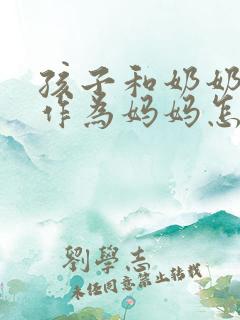 孩子和奶奶
作为妈妈怎
劉學志
未经同意禁止转载